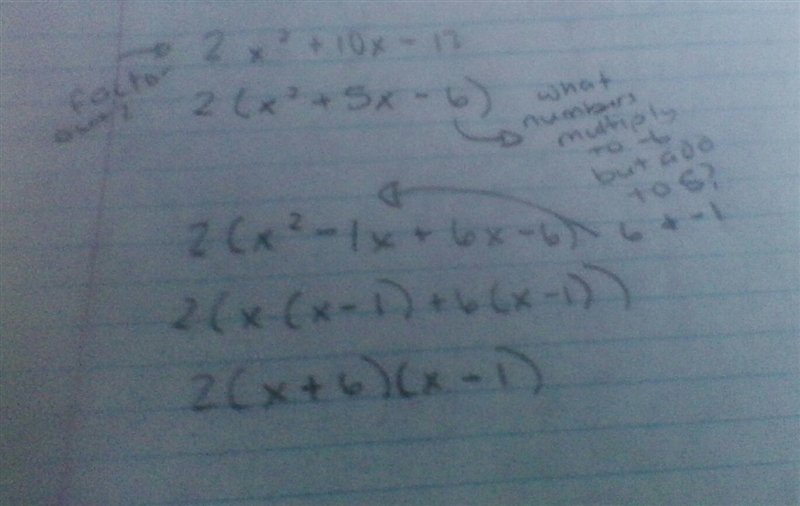 2x² + 10x - 12
factor
out 2
2(x² + 5x - 6)
what
numbers
multiply
to -6
but add
to 5?
2(x² - 1x + 6x - 6) 6 + -1
2(x(x-1) + 6(x-1))
2(x+6)(x-1)